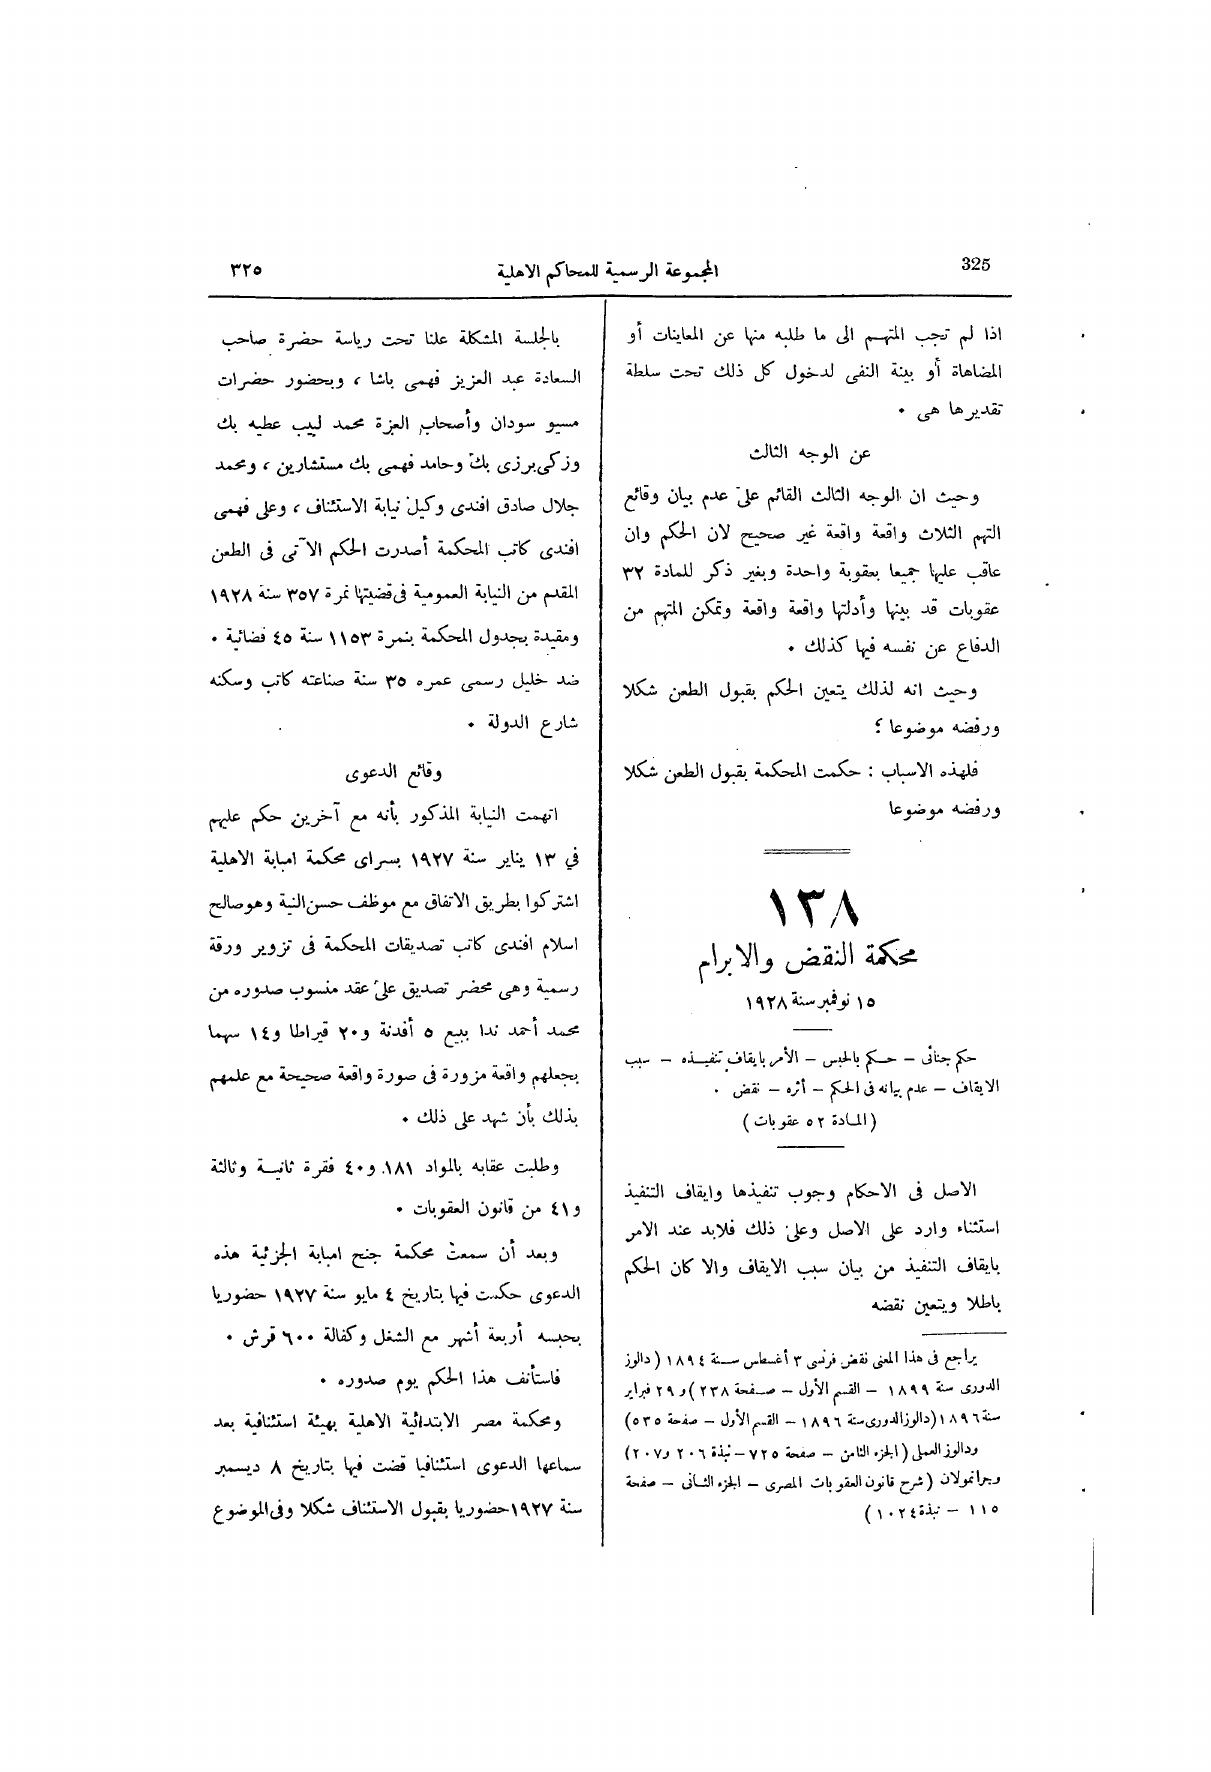 325
المجموعة الرسمية للمحاكم الاهلية
٣٢٥
اذا لم تجب المتهم الى ما طلبه منها عن المعاينات أو
المضاهاة أو بينة النفى لدخول كل ذلك تحت سلطة
تقديرها هى .
عن الوجه الثالث
وحيث ان الوجه الثالث القائم على عدم بيان وقائع
التهم الثلاث واقعة واقعة غير صحيح لان الحكم وان
عاقب عليها جميعا بعقوبة واحدة وبغير ذكر للمادة ٣٢
عقوبات قد بينها وأدلتها واقعة واقعة وتمكن المتهم من
الدفاع عن نفسه فيها كذلك .
وحيث انه لذلك يتعين الحكم بقبول الطعن شكلا
ورفضه موضوعا ؛
فلهذه الاسباب : حكمت المحكمة بقبول الطعن شكلا
ورفضه موضوعا
١٣٨
محكمة النقض والابرام
١٥ نوفمبر سنة ١٩٢٨
حكم جنائى — حكم بالحبس — الأمر بايقاف تنفيذه — سبب
الايقاف — عدم بيانه فى الحكم — أثره — نقض .
(المادة ٥٢ عقوبات)
الاصل فى الاحكام وجوب تنفيذها وايقاف التنفيذ
استثناء وارد على الاصل وعلى ذلك فلابد عند الامر
بايقاف التنفيذ من بيان سبب الايقاف والا كان الحكم
باطلا ويتعين نقضه
يراجع فى هذا المعنى نقض فرنسى ٣ أغسطس سنة ١٨٩٤ (دالوز
الدورى سنة ١٨٩٩ — القسم الأول — صفحة ٢٣٨) و٢٩ فبراير
سنة ١٨٩٦ (دالوز الدورى سنة ١٨٩٦ — القسم الأول — صفحة ٥٣٥)
ودالوز العملى (الجزء الثامن — صفحة ٧٢٥ — نبذة ٢٠٦ و٢٠٧)
وجرانمولان (شرح قانون العقوبات المصرى — الجزء الثانى — صفحة
١١٥ — نبذة ١٠٢٤)
بالجلسة المشكلة علنا تحت رياسة حضرة صاحب
السعادة عبد العزيز فهمى باشا ، وبحضور حضرات
مسيو سودان وأصحاب العزة محمد لبيب عطيه بك
وزكى برزى بك وحامد فهمى بك مستشارين ، ومحمد
جلال صادق افندى وكيل نيابة الاستئناف ، وعلى فهمى
افندى كاتب المحكمة أصدرت الحكم الآتى فى الطعن
المقدم من النيابة العمومية فى قضيتها نمرة ٣٥٧ سنة ١٩٢٨
ومقيدة بجدول المحكمة بنمرة ١١٥٣ سنة ٤٥ قضائية .
ضد خليل رسمى عمره ٣٥ سنة صناعته كاتب وسكنه
شارع الدولة .
وقائع الدعوى
اتهمت النيابة المذكور بأنه مع آخرين حكم عليهم
في ١٣ يناير سنة ١٩٢٧ بسراى محكمة امبابة الاهلية
اشتركوا بطريق الاتفاق مع موظف حسن النية وهو صالح
اسلام افندى كاتب تصديقات المحكمة فى تزوير ورقة
رسمية وهى محضر تصديق على عقد منسوب صدوره من
محمد أحمد ندا ببيع ٥ أفدنة و٢٠ قيراطا و١٤ سهما
بجعلهم واقعة مزورة فى صورة واقعة صحيحة مع علمهم
بذلك بأن شهد على ذلك .
وطلبت عقابه بالمواد ١٨١ و٤٠ فقرة ثانية وثالثة
و٤١ من قانون العقوبات .
وبعد أن سمعت محكمة جنح امبابة الجزئية هذه
الدعوى حكمت فيها بتاريخ ٤ مايو سنة ١٩٢٧ حضوريا
بحبسه أربعة أشهر مع الشغل وكفالة ٦٠٠ قرش .
فاستأنف هذا الحكم يوم صدوره .
ومحكمة مصر الابتدائية الاهلية بهيئة استئنافية بعد
سماعها الدعوى استئنافيا قضت فيها بتاريخ ٨ ديسمبر
سنة ١٩٢٧ حضوريا بقبول الاستئناف شكلا وفى الموضوع